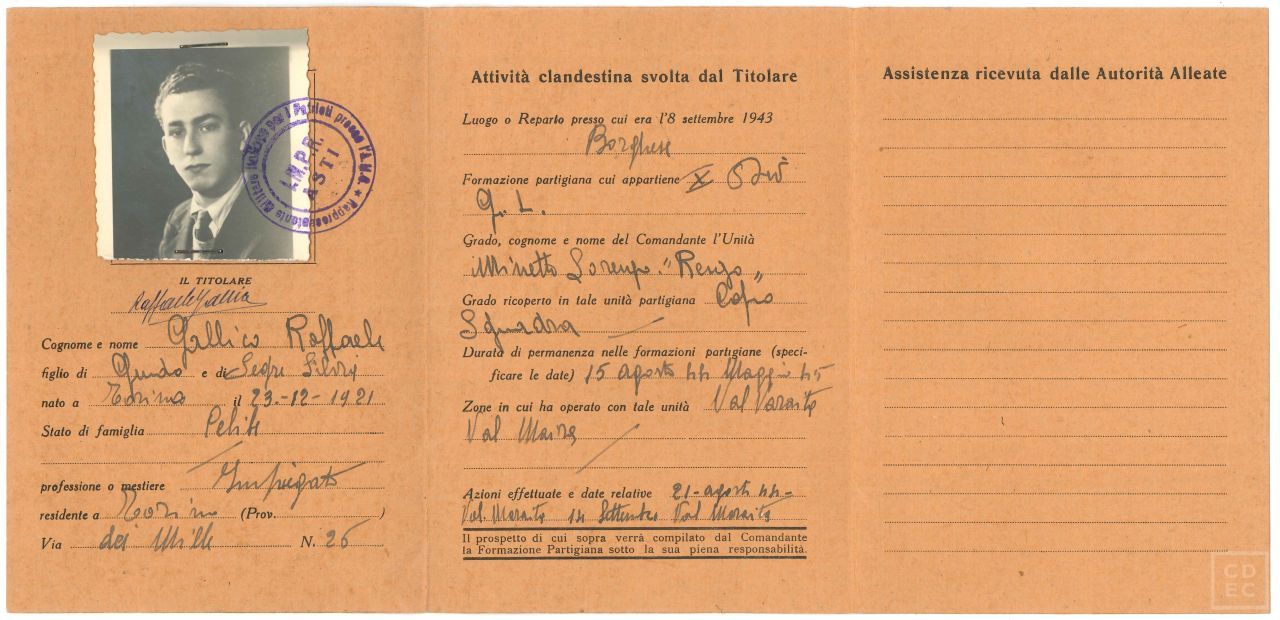 Rappresentante Militare Italiano per i Patrioti presso l'A.M.G.
I.M.P.R.
ASTI
IL TITOLARE
Raffaele Gallico
Cognome e nome Gallico Raffaele
figlio di Guido e di Segre
nato a Torino il 23-12-1921
Stato di famiglia Celibe
professione o mestiere Impiegato
residente a Torino (Prov. )
Via dei Mille N. 26
Attività clandestina svolta dal Titolare
Luogo o Reparto presso cui era l'8 settembre 1943
Borghese
Formazione partigiana cui appartiene X Div
G. L.
Grado, cognome e nome del Comandante l'Unità
Minetto Lorenzo "Renzo"
Grado ricoperto in tale unità partigiana Capo
Squadra
Durata di permanenza nelle formazioni partigiane (speci-
ficare le date) 15 agosto 44 Maggio 45
Zone in cui ha operato con tale unità Val Varaita
Val Maira
Azioni effettuate e date relative 21-agosto 44-
Val 14 Settembre Val
Il prospetto di cui sopra verrà compilato dal Comandante
la Formazione Partigiana sotto la sua piena responsabilità.
Assistenza ricevuta dalle Autorità Alleate
CD
EC